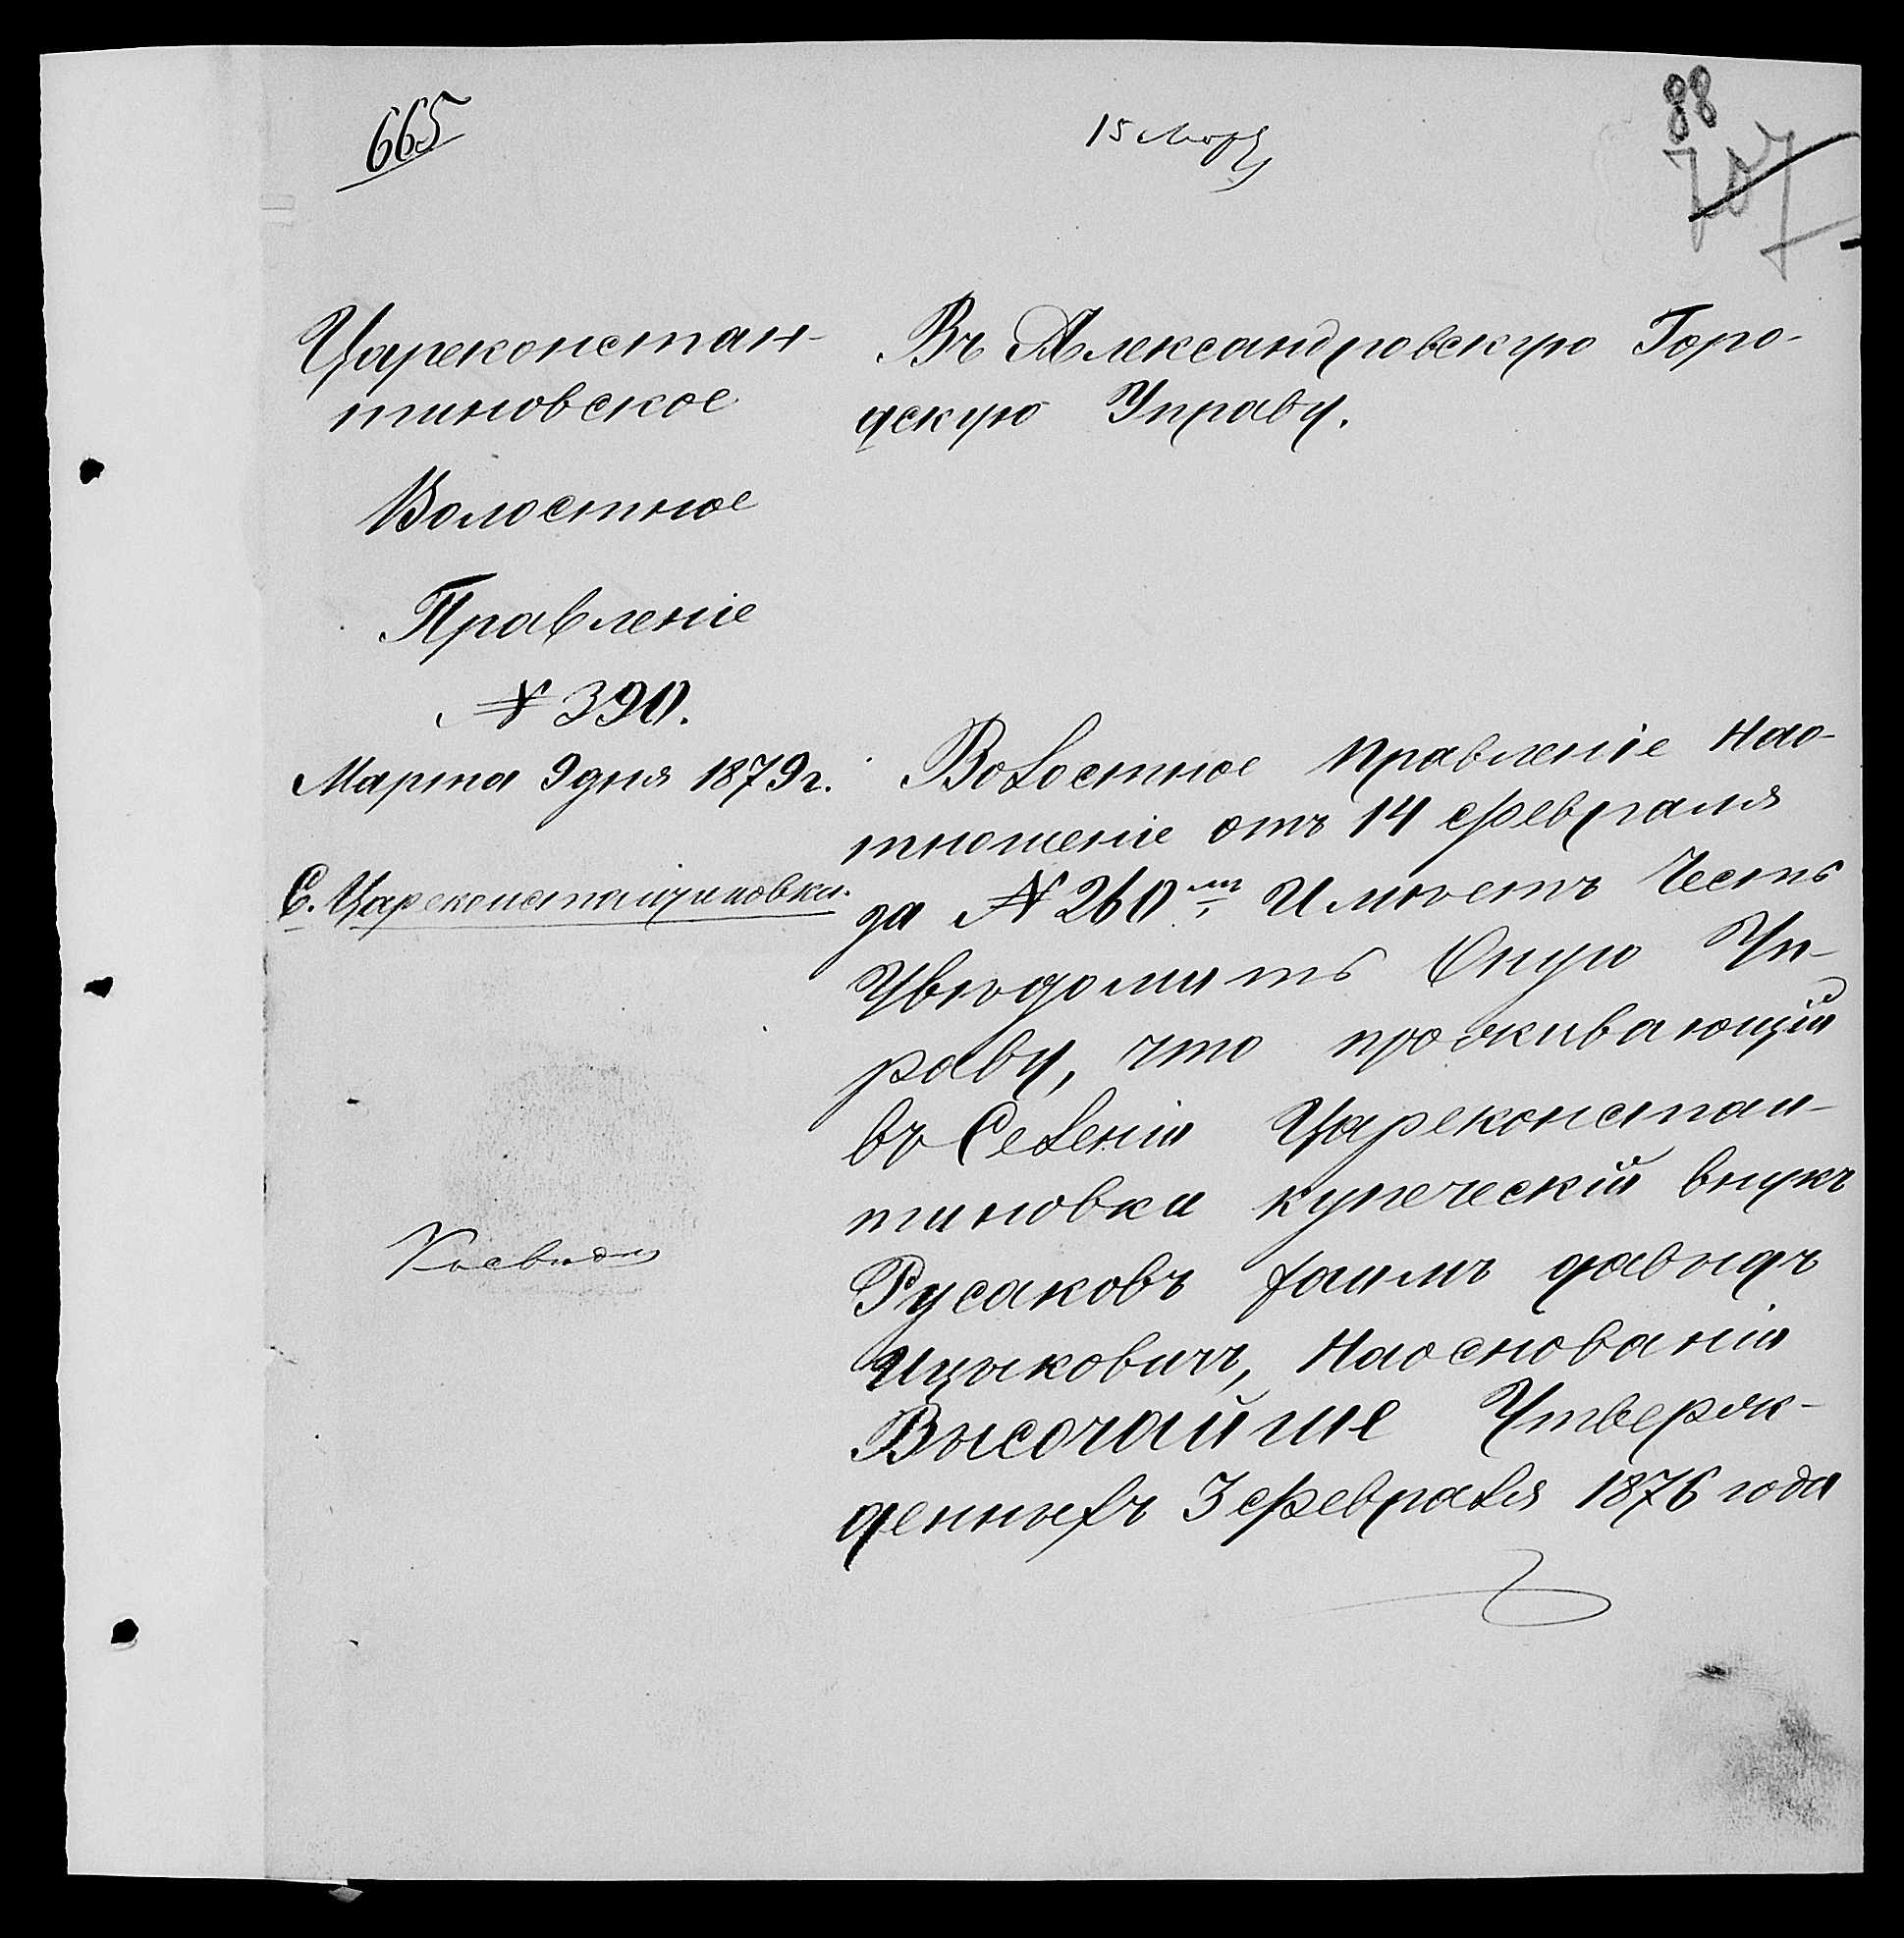 665
15 Мар
88
707
Цареконстан-
тиновское
Волостное
Правленіе
№ 390.
Марта 9 дня 1879 г.
С. Цареконстантиновка.
Въ Александровскую Горо-
дскую Управу.
Волостное правленіе нао-
тношеніе отъ 14 февраля
за № 260 имѣетъ честь
увѣдомить оную Уп-
раву, что проживающій
въ Селеніи Цареконстан-
тиновка купеческій внукъ
Русаковъ Хаимъ Давидъ
Ицыковичъ, наоснованіи
Высочайше Утверж-
денныхъ 3 февраля 1876 года